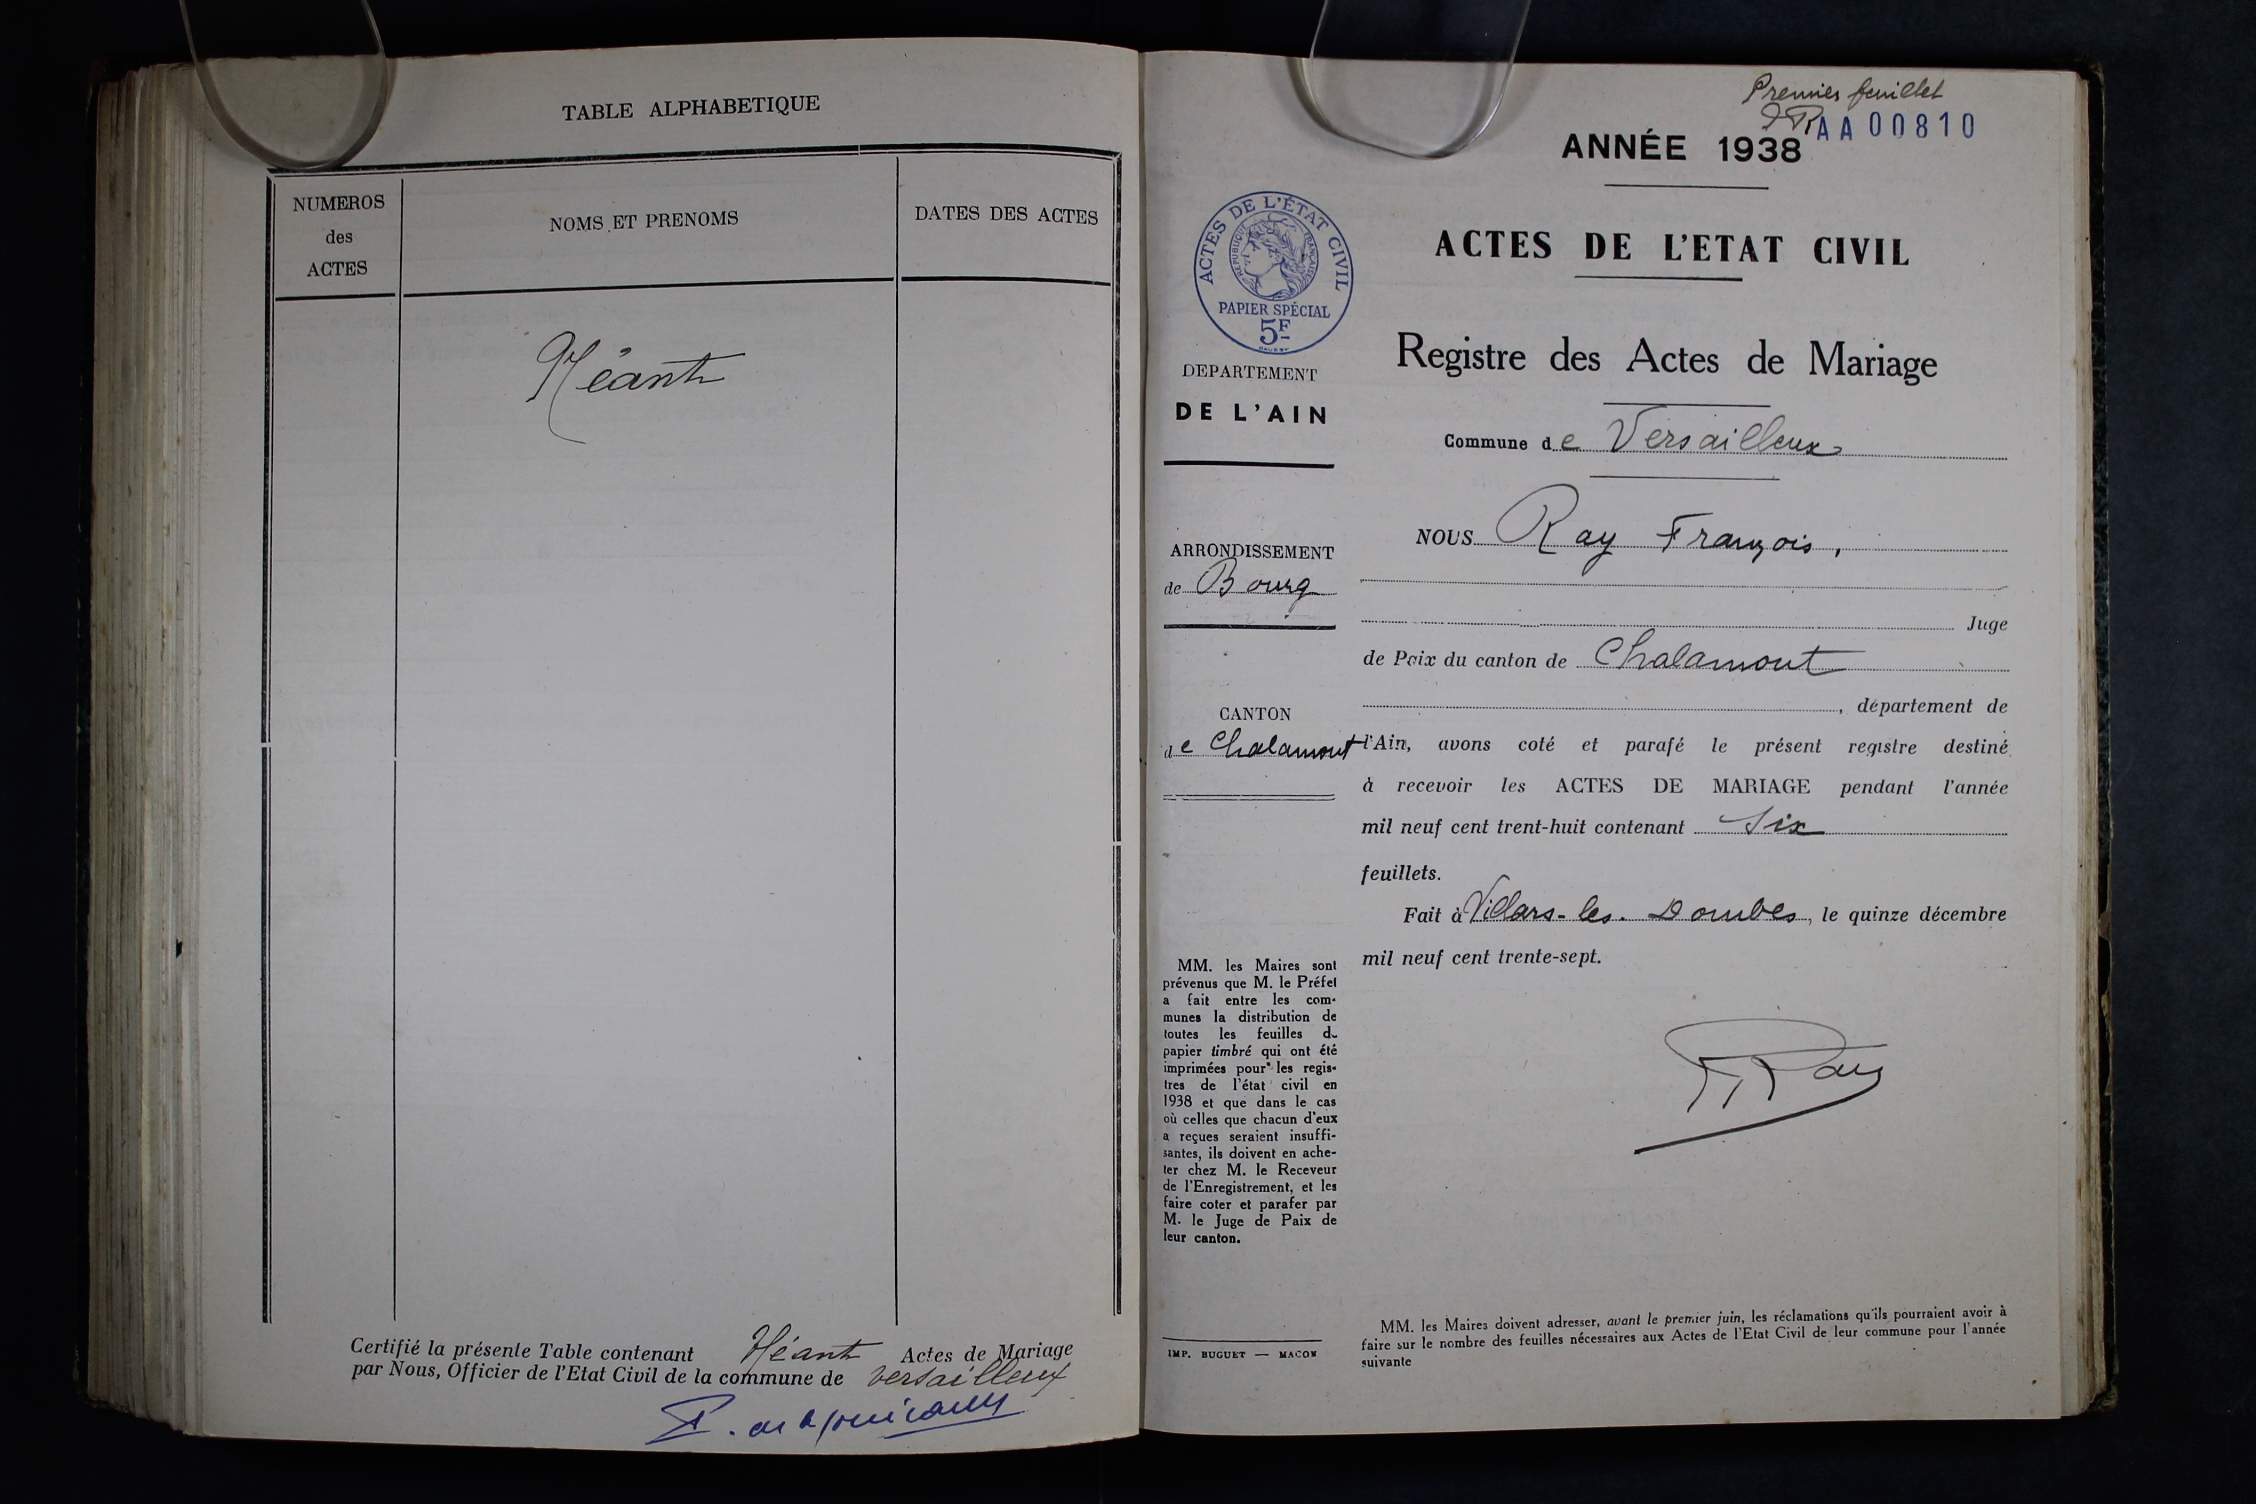 TABLE ALPHABETIQUE
NUMEROS
des
ACTES
NOMS ET PRENOMS
DATES DES ACTES
Néant
Certifié la présente Table contenant Néant Actes de Mariage
par Nous, Officier de l'Etat Civil de la commune de Versailleux
Premier feuillet
AA 00810
ANNÉE 1938
ACTES DE L'ÉTAT CIVIL
RÉPUBLIQUE FRANÇAISE
PAPIER SPÉCIAL
5F
ACTES DE L'ETAT CIVIL
Registre des Actes de Mariage
DEPARTEMENT
DE L'AIN
Commune de Versailleux
ARRONDISSEMENT
de Bourg
CANTON
de Chalamont
NOUS Ray François,
Juge
de Paix du canton de Chalamont
, département de
l'Ain, avons coté et parafé le présent registre destiné
à recevoir les ACTES DE MARIAGE pendant l'année
mil neuf cent trent-huit contenant six
feuillets.
Fait à Villars-les-Dombes, le quinze décembre
mil neuf cent trente-sept.
Ray
MM. les Maires sont
prévenus que M. le Préfet
a fait entre les com-
munes la distribution de
toutes les feuilles de
papier timbré qui ont été
imprimées pour les regis-
tres de l'état civil en
1938 et que dans le cas
où celles que chacun d'eux
a reçues seraient insuffi-
santes, ils doivent en ache-
ter chez M. le Receveur
de l'Enregistrement, et les
faire coter et parafer par
M. le Juge de Paix de
leur canton.
IMP. BUGUET — MACON
MM. les Maires doivent adresser, avant le premier juin, les réclamations qu'ils pourraient avoir à
faire sur le nombre des feuilles nécessaires aux Actes de l'Etat Civil de leur commune pour l'année
suivante